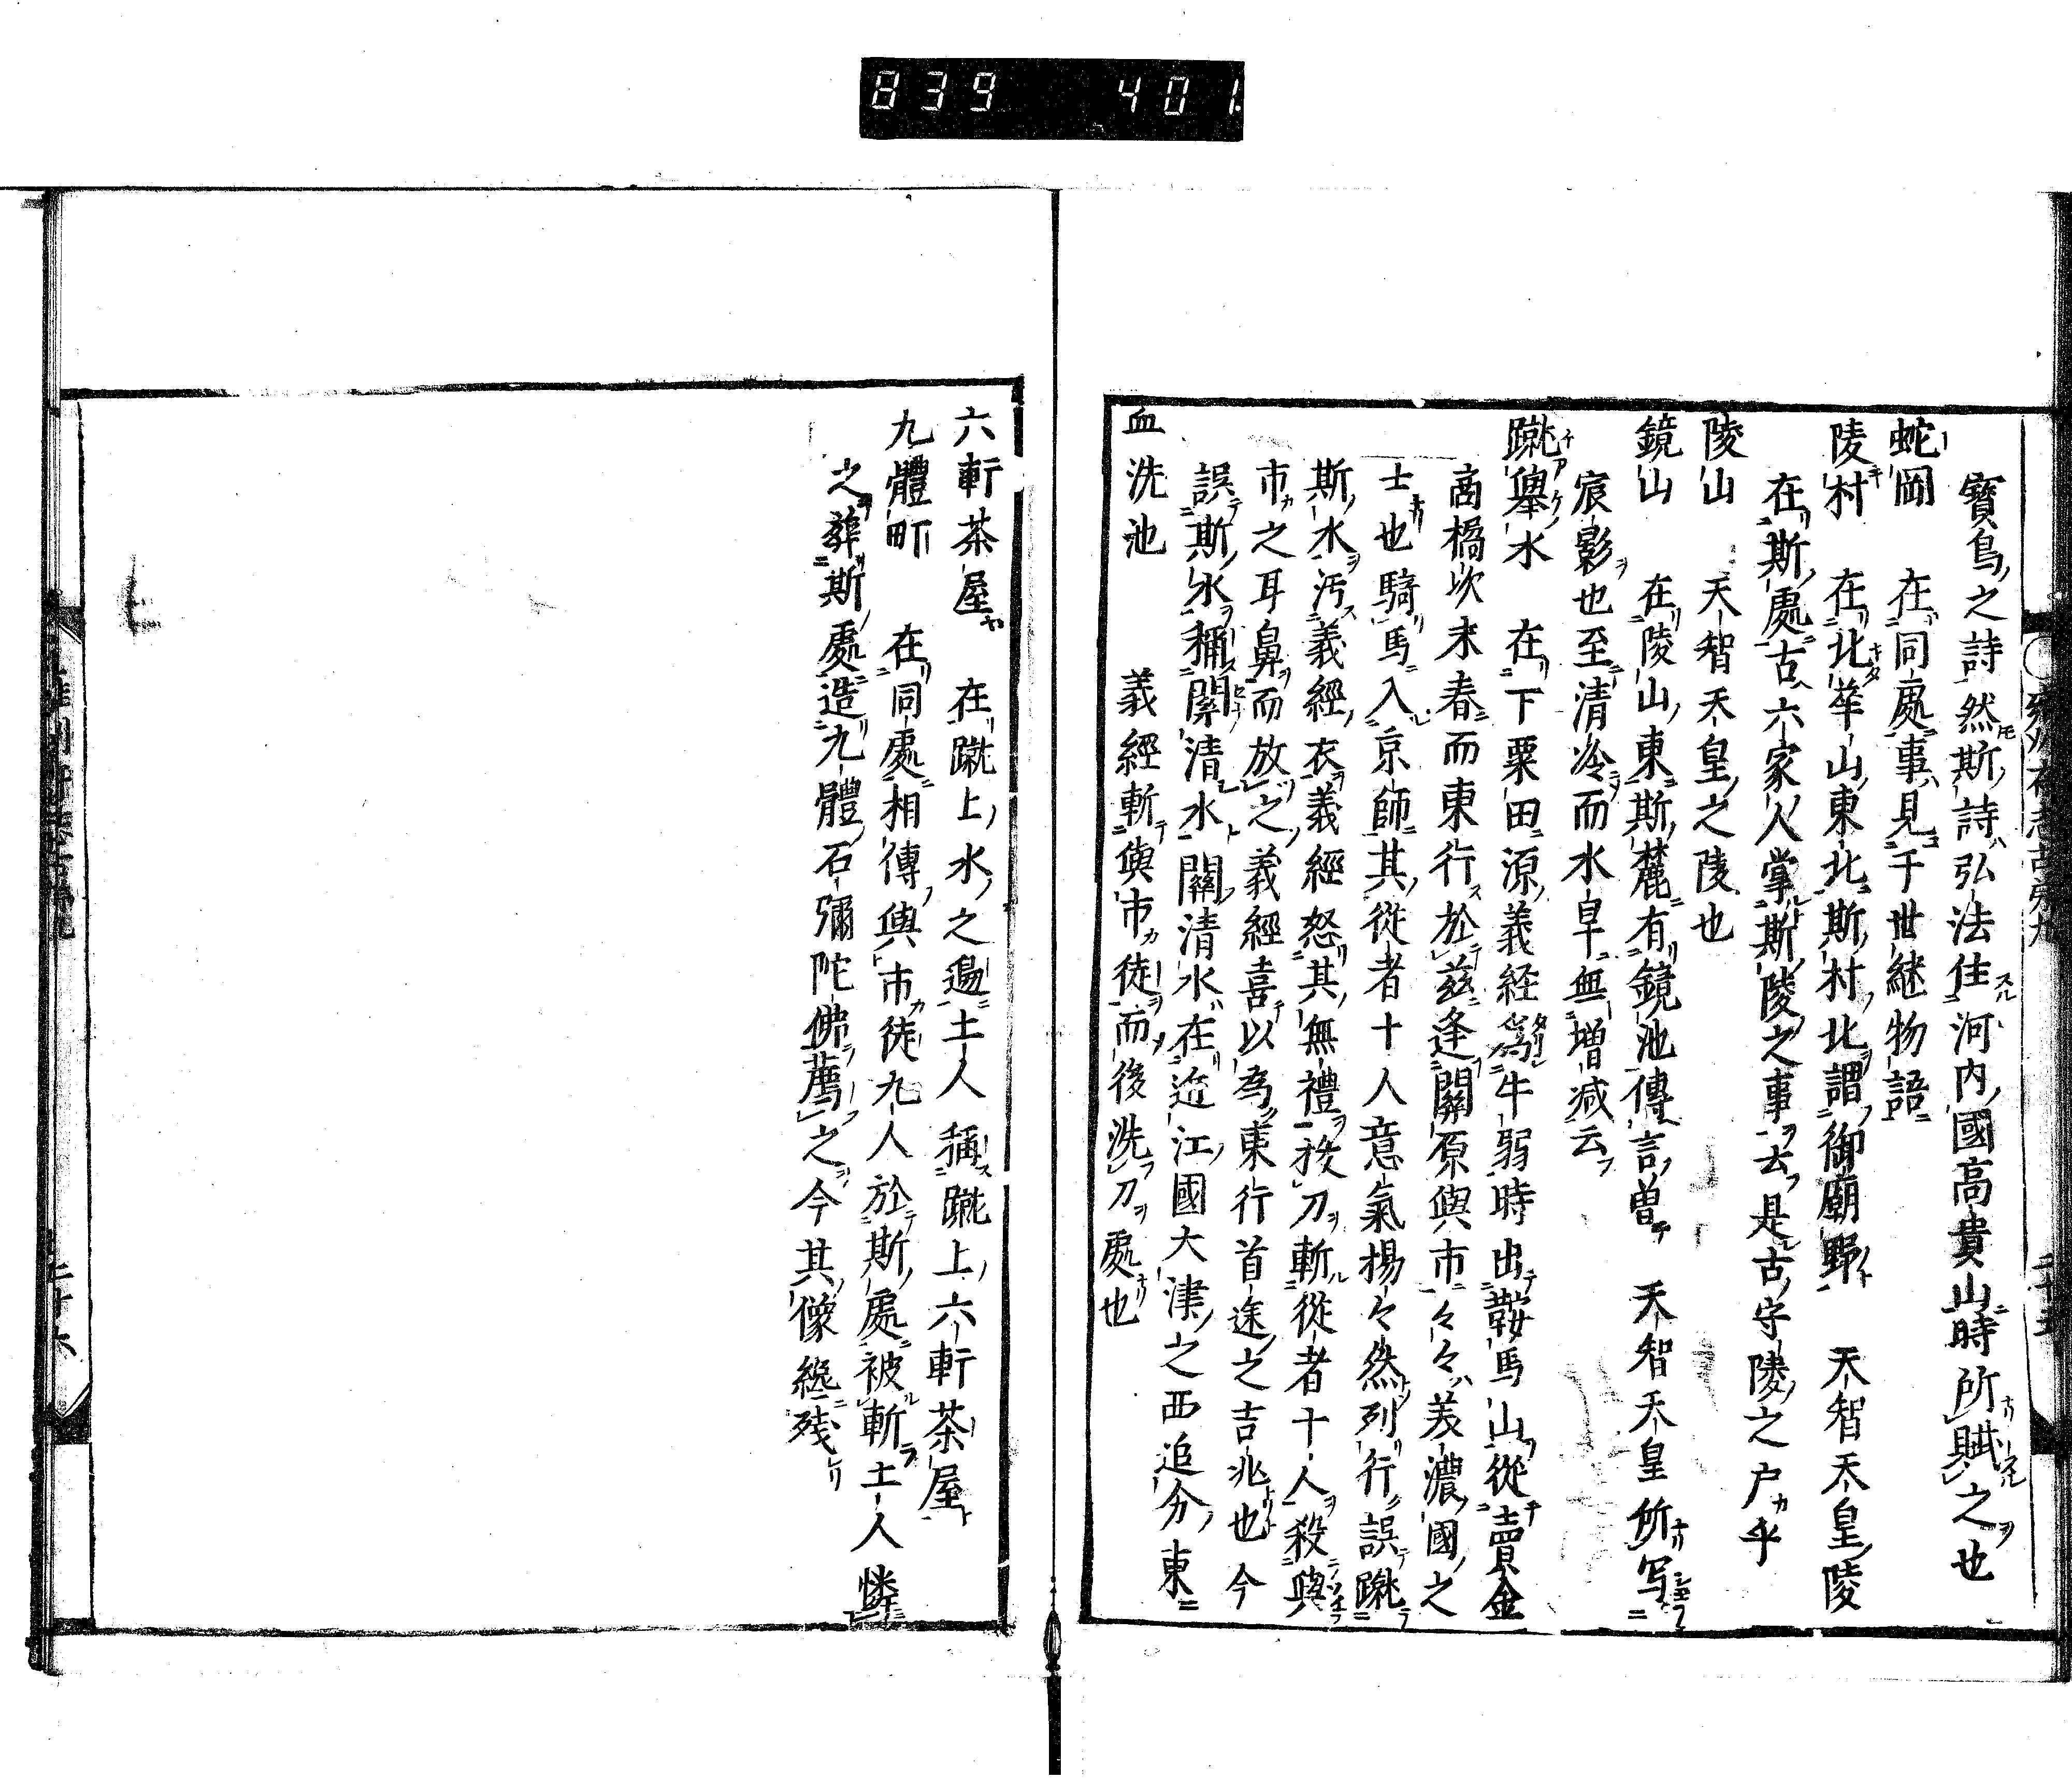 839 401
寶鳥之詩然斯詩弘法住河内國高貴山時所賦之也
蛇岡 在同處事見于世継物語
陵村 在北華山東北斯村北謂御廟野 天智天皇陵
在斯處古六家人掌斯陵之事去是古守陵之戸乎
陵山 天智天皇之陵也
鏡山 在陵山東斯麓有鏡池傳言曽 天智天皇所写
宸影也至清冷而水旱無増減云
蹴舉水 在下粟田源義経為牛弱時出鞍馬山從賣金
商橘次末春而東行於茲逢關原與市々々美濃國之
士也騎馬入京師其從者十人意氣揚々然列行誤蹴
斯水汚義經衣義經怒其無禮抜刀斬從者十人殺與
市之耳鼻而放之義經喜以為東行首途之吉兆也今
誤斯水稱關清水關清水在近江國大津之西追分東
血洗池 義經斬與市徒而後洗刀處也
六軒茶屋 在蹴上水之邉土人稱蹴上六軒茶屋
九體町 在同處相傳與市徒九人於斯處被斬土人憐
之葬斯處造九體石彌陀佛薦之今其像纔残